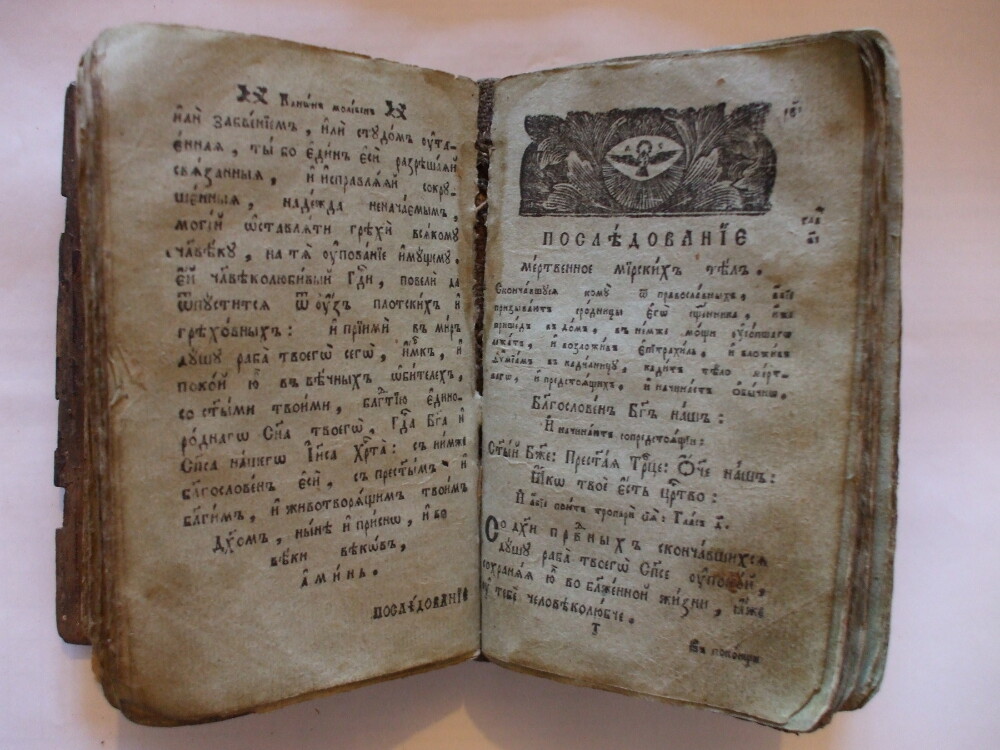 Канѡ́нъ моле́бенъ
и҆лѝ забве́нїемъ, и҆лѝ стꙋдо́мъ ᲂу҆та-
є҆́нная, ты́ бо є҆ди́нъ є҆сѝ разрѣша́ѧй
свѧ́занныя, и҆ и҆справлѧ́ѧй сокрꙋ-
ше́нныя, наде́жда ненача́емымъ,
могі́й ѡ҆ставлѧ́ти грѣхѝ всѧ́комꙋ
чл҃вѣ́кꙋ, на тѧ̀ ᲂу҆пова́нїе и҆мꙋ́щемꙋ.
є҆́й чл҃вѣколюби́вый гдⷭ҇и, повелѝ да
ѿпꙋ́стится ѿ ᲂу҆́зъ плотски́хъ и҆
грѣхо́вныхъ: и҆ прїимѝ въ ми́ръ
дꙋ́шꙋ раба̀ твоегѡ̀ сегѡ̀, и҆́мкъ, и҆
поко́й ю҆̀ въ вѣ́чныхъ ѡ҆би́телехъ,
со ст҃ы́ми твои́ми, бл҃года́тїю є҆дино-
ро́днагѡ сн҃а твоегѡ̀, гдⷭ҇а бг҃а и҆
сп҃са на́шегѡ і҆и҃са хрⷭ҇та̀: съ ни́мже
бл҃гослове́нъ є҆сѝ, съ прест҃ы́мъ и҆
бл҃ги́мъ, и҆ животворѧ́щимъ твои́мъ
дх҃омъ, ны́нѣ и҆ при́снѡ, и҆ во
вѣ́ки вѣкѡ́въ,
а҆ми́нь.
послѣ́дованїе
ПОСЛѢ́ДОВАНЇЕ
ме́ртвенное мїрски́хъ тѣ́лъ.
Сконча́вшꙋся комꙋ̀ ѿ правосла́вныхъ, а҆́бїе
призыва́ютъ сро́дницы є҆гѡ̀ сщ҃е́нника, и҆́же
прише́дъ въ до́мъ, въ не́мже мо́щи ᲂу҆со́пшагѡ
лежа́тъ, и҆ возложи́въ є҆пїтрахи́ль, и҆ вложи́въ
ѳѷмїа́мъ въ кади́лницꙋ, кади́тъ тѣ́ло ме́рт-
вагѡ, и҆ предстоѧ́щихъ, и҆ начина́етъ ѡ҆бы́чнѡ,
Бл҃гослове́нъ бг҃ъ на́шъ:
И҆ начина́ютъ сопредстоѧ́щїи:
Ст҃ы́й бж҃е: Прест҃а́я трⷪ҇це: Ѻ҆́ч҃е на́шъ:
Ꙗ҆́кѡ твоѐ є҆́сть црⷭ҇тво:
И҆ а҆́бїе пою́тъ тропарѝ сїѧ̑: Гла́съ д҃.
Со дꙋ́хи првⷣныхъ сконча́вшихся
дꙋ́шꙋ раба̀ твоегѡ̀ сп҃се ᲂу҆поко́й,
сохранѧ́я ю҆̀ во бл҃же́нной жи́зни, ꙗ҆́же
ᲂу҆ тебє̀ человѣколю́бче.
Въ поко́ищи